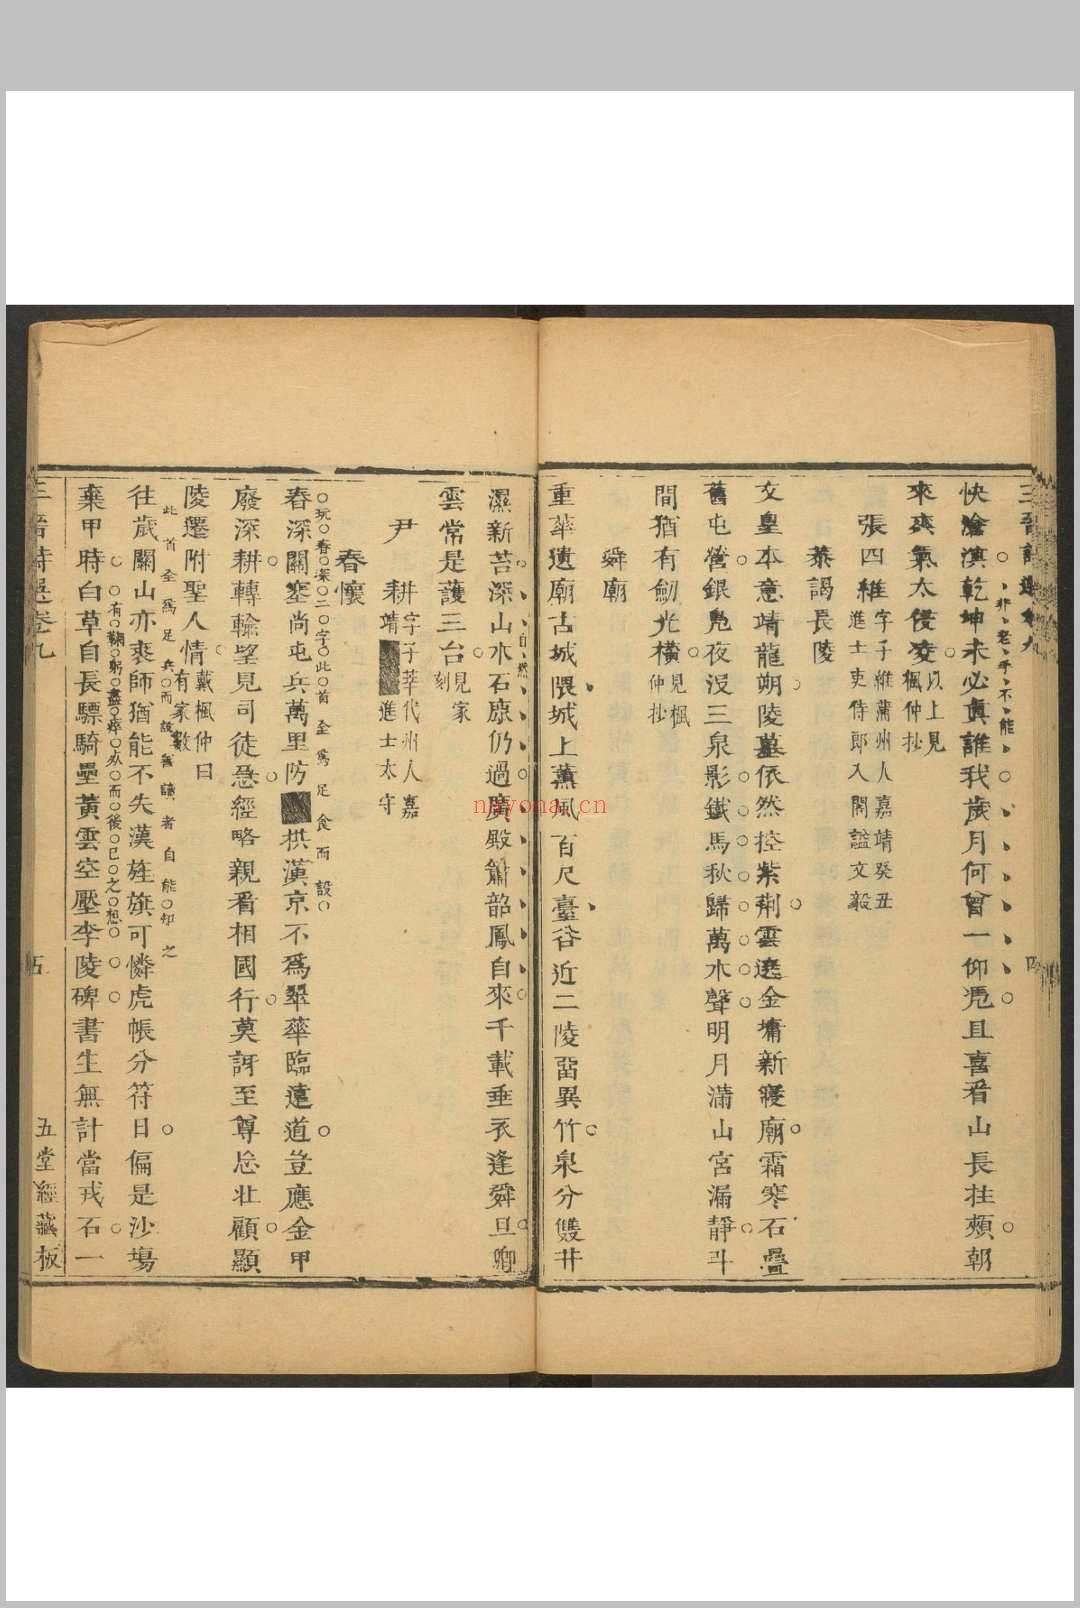 三晉詩選卷九
四
非老手不能
快滄溟乾坤未必真誰我歲月何曾一仰凭且喜看山長拄頰朝
來爽氣太侵凌以上見楓仲抄
張四維字子維蒲州人嘉靖癸丑進士吏侍郎入閣謚文毅
恭謁長陵
文皇本意靖龍朔陵墓依然控紫荊雲遶金墉新寢廟霜寒石疊
舊屯營銀鳧夜沒三泉影鐵馬秋歸萬木聲明月滿山宮漏靜斗
間猶有劒光橫見楓仲抄
舜廟
重華遺廟古城隈城上薰風百尺臺谷近二陵畱異竹泉分雙井
自然
濕新苔深山木石原仍過廣殿簫韶鳳自來千載垂衣逢舜旦卿
雲常是護三台見家刻
尹耕字子莘代州人嘉靖進士太守
春懷
玩春深二字此首全為足食而設
春深關塞尚屯兵萬里防拱漢京不爲翠華臨遠道豈應金甲
廢深耕轉輸望見司徒急經略親看相國行莫訝至尊忘壯顧顯
陵遷附聖人情戴楓仲曰有家數
此首全爲足兵而設善讀者自能知之
往歲關山亦衷師猶能不失漢旌旗可憐虎帳分符日偏是沙塲
有鞠躬盡瘁死而後已之想
棄甲時白草自長驃騎壘黃雲空壓李陵碑書生無計當戎石一
三晉詩選卷九
五
五堂經藏板
nayona.cn